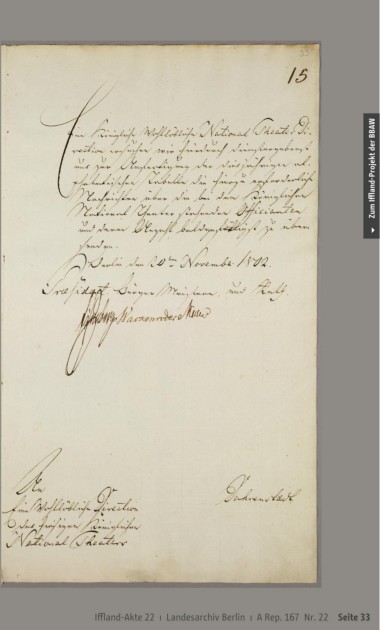 15
Eine Königliche Wohllöbliche National Theater Di-
rection ersuchen wir hierdurch dienstergebenst
uns zur Anfertigung der diesjährigen al-
phabetischen Tabelle die hierzu erforderliche
Nachrichten über die bei dem Königlichen
National Theater stehenden Officianten
und deren Angehörige baldgefälligst zu über
senden.
Berlin den 20ten November 1802.
President Bürger Meistere, und Rath.
An
Eine Wohllöbliche Direction
des hiesigen Königlichen
National Theaters
Zum Iffland-Projekt der BBAW
Iffland-Akte 22 | Landesarchiv Berlin | A Rep. 167 Nr. 22 Seite 33